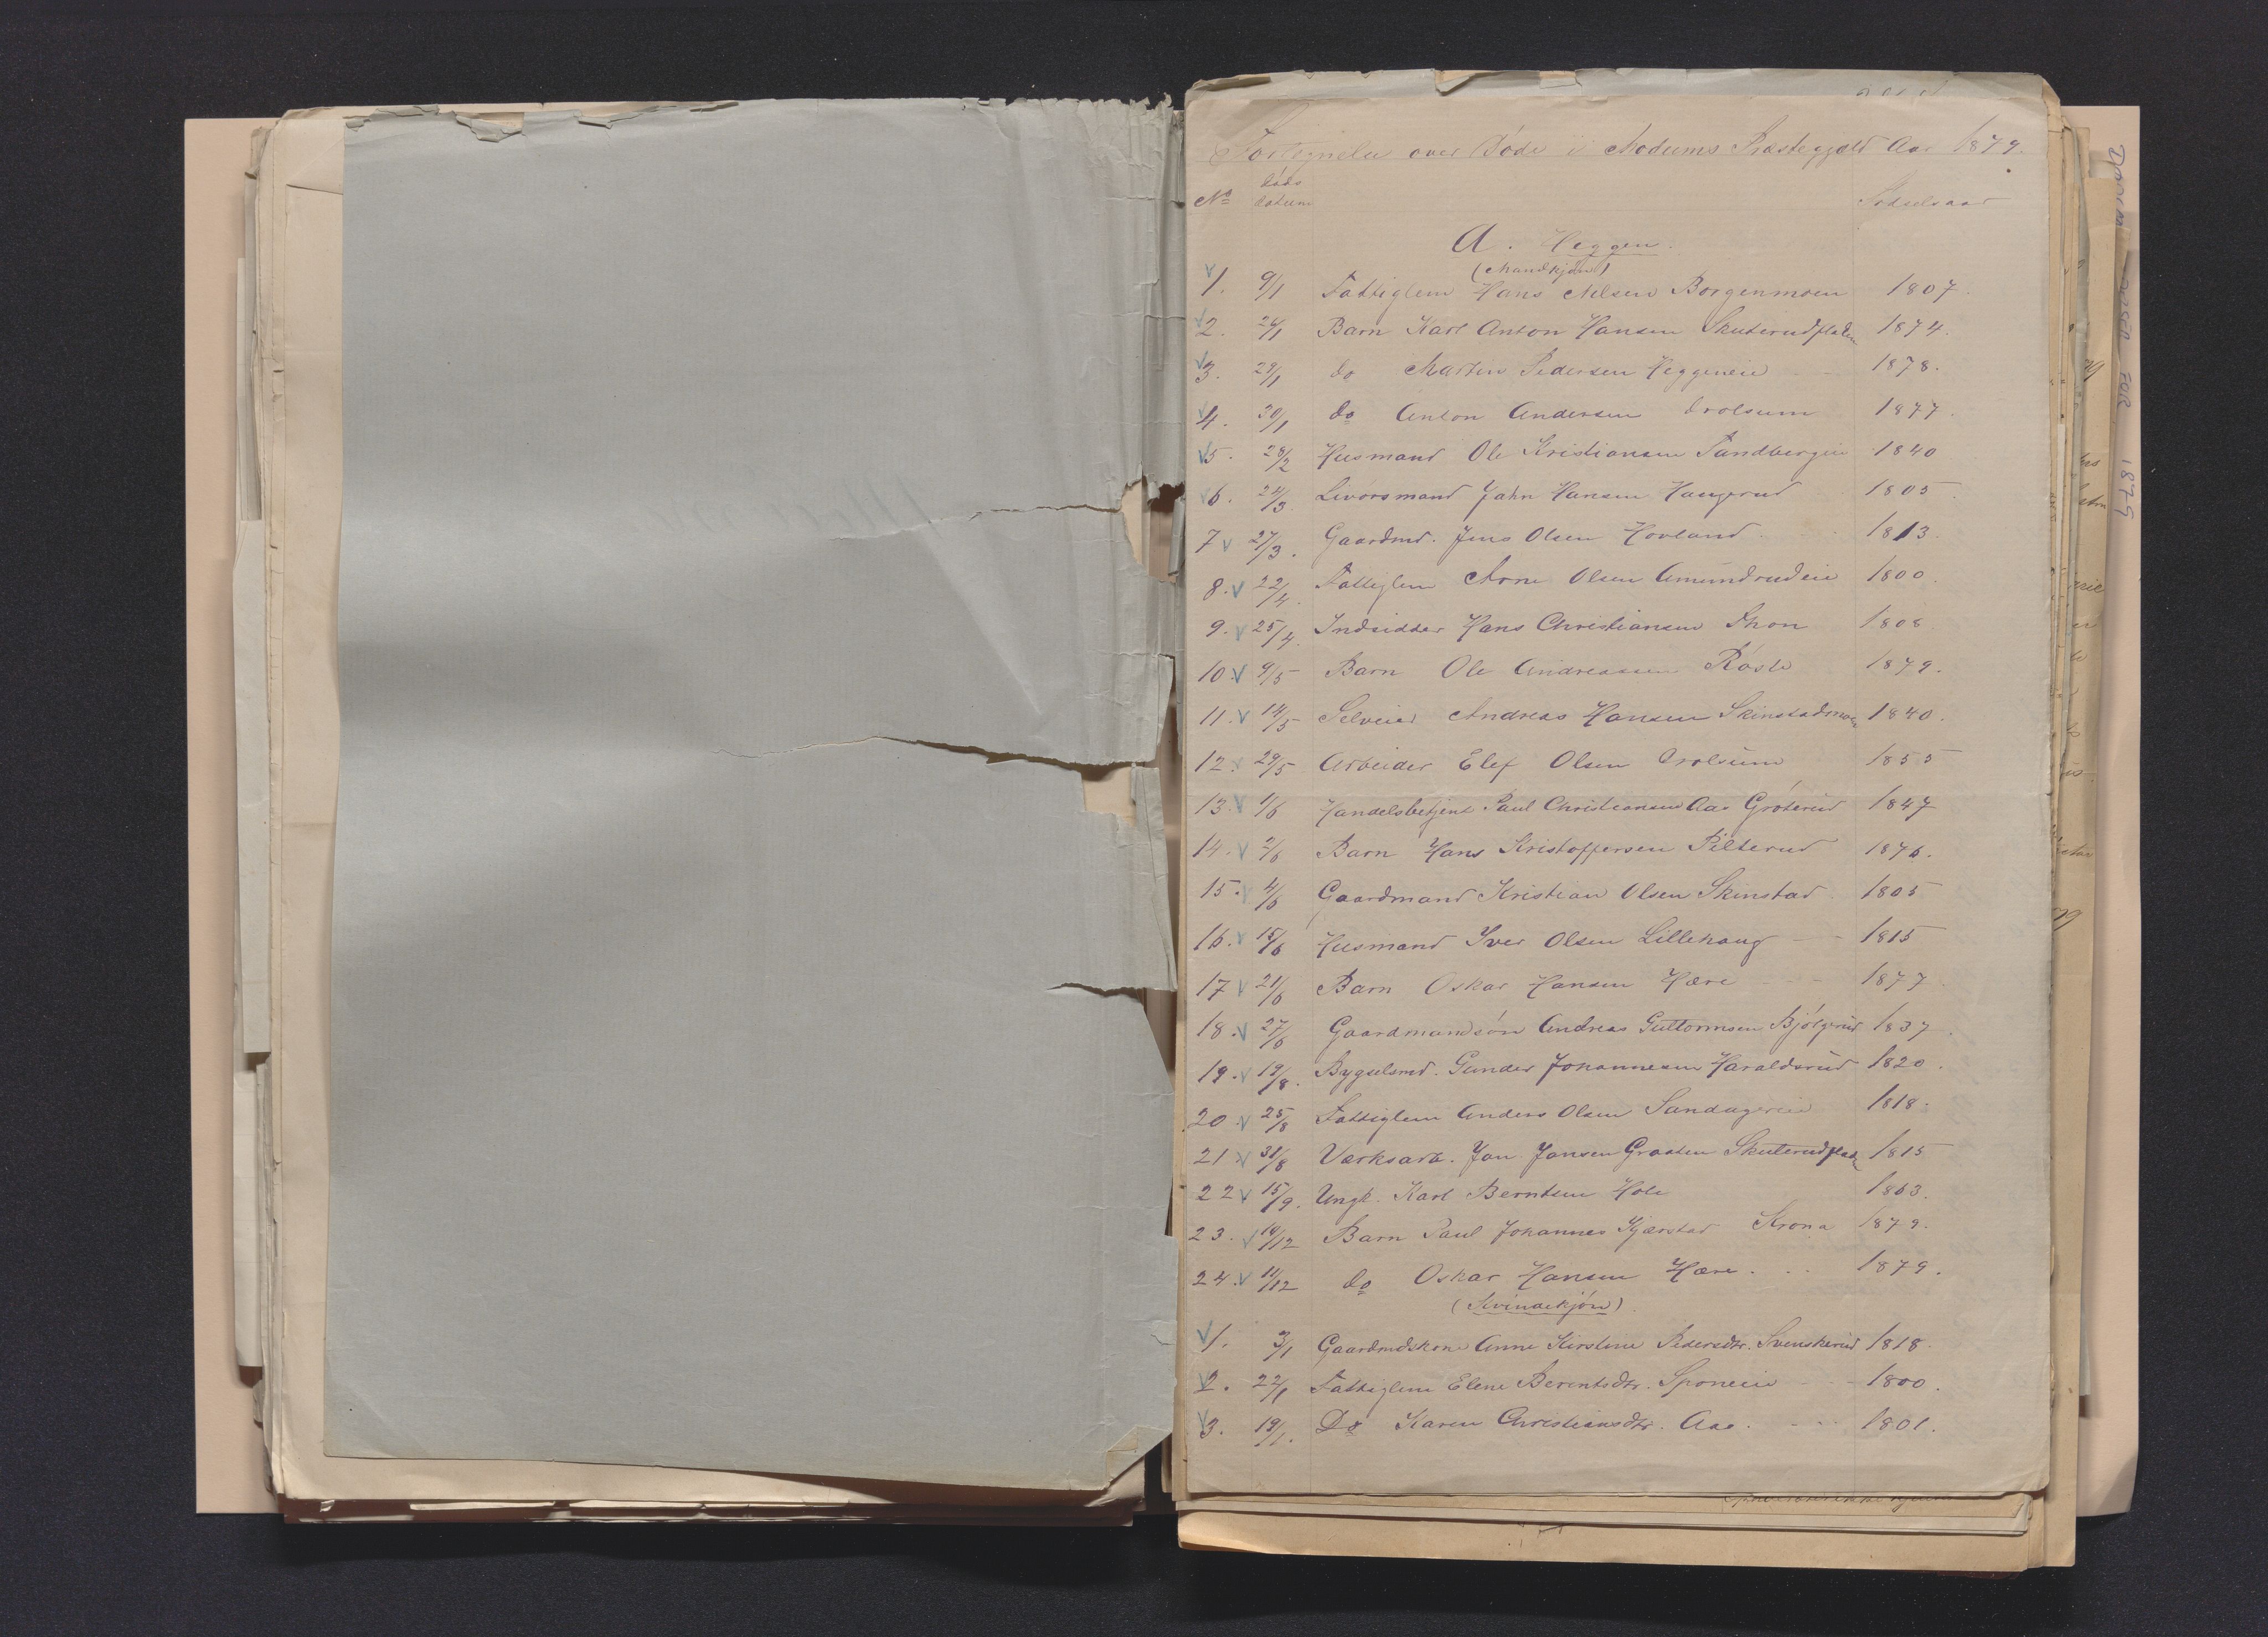 Fortegnelse over Døde i Modums Præstegjæld Aar 1879.
No døds datum Fødselsaar
A. Heggen.
(Mandkjøn)
1. 9/1 Fattiglem Hans Nilsen Borgenmoen 1807.
2. 26/1 Barn Karl Anton Hansen Skuterudpladsen 1874.
3. 29/1 do Martin Pedersen Heggeneie 1878.
4. 30/1 do Anton Andersen Drolsum 1877.
5. 28/2 Husmand Ole Kristiansen Sandbergeie 1840
6. 24/3 Livørsmand Jahn Hansen Haugerud 1805
7 27/3. Gaardmd. Jens Olsen Hovland 1813.
8. 22/4. Fattiglem Arne Olsen Amundrudeie 1800.
9. 25/4. Indsidder Hans Christiansen Thon 1808
10. 9/5 Barn Ole Andreassen Røste 1879.
11. 14/5 Selveier Andreas Hansen Skinstadmoen 1840.
12. 29/5 Arbeider Elef Olsen Drolsum 1855
13. 1/6 Handelsbetjent Paul Christiansen Aas Grøterud 1847
14. 2/6 Barn Hans Kristoffersen Pilterud 1876.
15. 4/6 Gaardmand Kristian Olsen Skinstad 1805
16. 15/6 Husmand Iver Olsen Lillehaug 1815
17 21/6 Barn Oskar Hansen Hære 1877
18. 27/6 Gaardmandsøn Andreas Guttormsen Bjølgerud 1837.
19. 19/8. Bygselsmd. Gunder Johannesen Haraldsrud 1820.
20. 25/8 Fattiglem Anders Olsen Sandagereie 1818.
21 31/8 Værksarb. Jan Jansen Graaten Skuterudplads 1815
22 15/9. Ungk. Karl Berntsen Hole 1863.
23. 10/12 Barn Paul Johannes Kjærstad Krona 1879.
24. 11/12 do Oskar Hansen Hære. 1879.
(Kvindekjøn)
1. 3/1 Gaardmdskone Anne Kirstine Pedersdtr. Svenskerud 1818.
2. 22/1 Fattiglem Elene Berentsdtr. Sponeeie 1800.
3. 19/1. Do Karen Christiansdtr. Aas. 1801.
1879